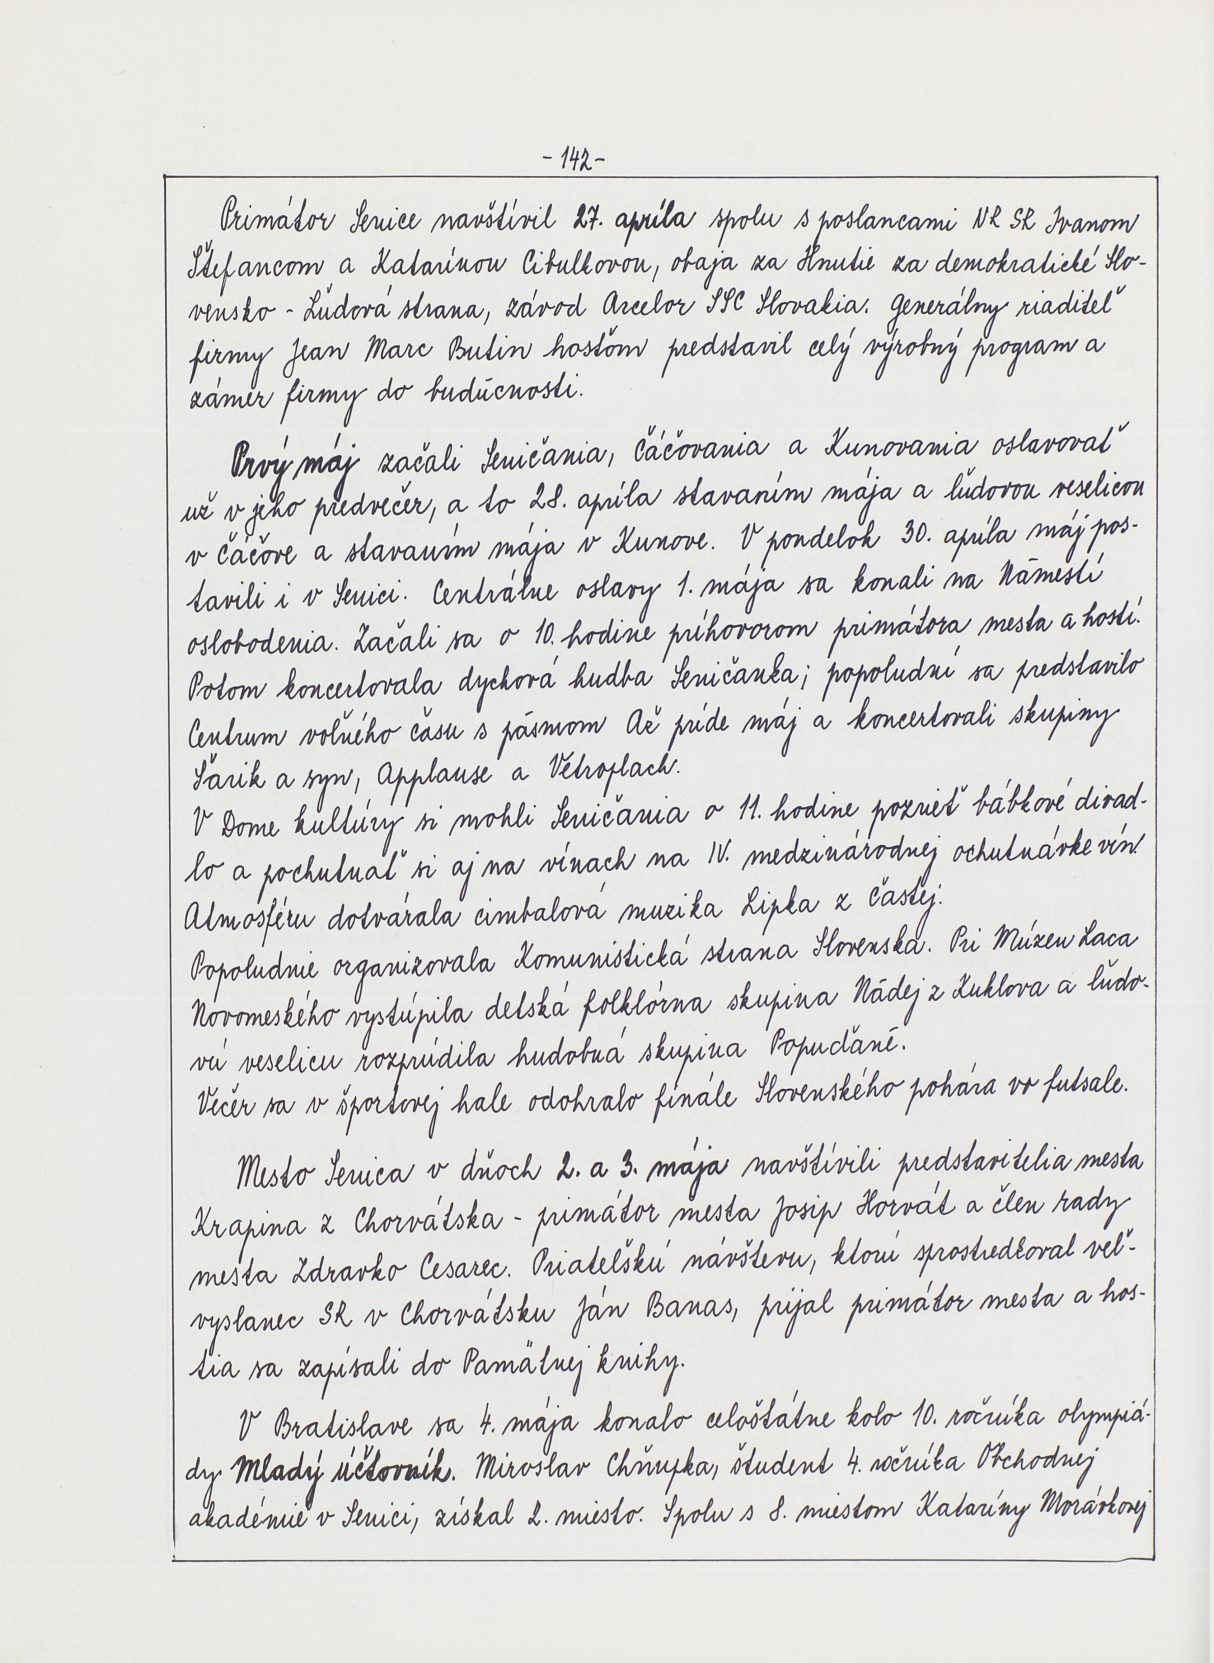 - 142 -
Primátor Senice navštívil 27. apríla spolu s poslancami NR SR Ivanom
Štefancom a Katarínou Cibulkovou, obaja za Hnutie za demokratické Slo-
vensko - Ľudová strana, závod Arcelor SSC Slovakia. Generálny riaditeľ
firmy Jean Marc Butin hosťom predstavil celý výrobný program a
zámer firmy do budúcnosti.
Prvý máj začali Seničania, Čáčovania a Kunovania oslavovať
už v jeho predvečer, a to 28. apríla stavaním mája a ľudovou veselicou
v Čáčove a stavaním mája v Kunove. V pondelok 30. apríla máj pos-
tavili i v Senici. Centrálne oslavy 1. mája sa konali na Námestí
oslobodenia. Začali sa o 10. hodine príhovorom primátora mesta a hostí.
Potom koncertovala dychová hudba Seničanka; popoludní sa predstavilo
Centrum voľného času s pásmom Až príde máj a koncertovali skupiny
Šarik a syn, Applause a Vetroplach.
V Dome kultúry si mohli Seničania o 11. hodine pozrieť bábkové divad-
lo a pochutnať si aj na vínach na IV. medzinárodnej ochutnávke vín.
Atmosféru dotvárala cimbalová muzika Lipka z Častej.
Popoludnie organizovala Komunistická strana Slovenska. Pri Múzeu Laca
Novomeského vystúpila detská folklórna skupina Nádej z Kuklova a ľudo-
vú veselicu rozprúdila hudobná skupina Popudčané.
Večer sa v športovej hale odohralo finále Slovenského pohára vo futsale.
Mesto Senica v dňoch 2. a 3. mája navštívili predstavitelia mesta
Krapina z Chorvátska - primátor mesta Josip Horvát a člen rady
mesta Zdravko Cesarec. Priateľskú návštevu, ktorú sprostredkoval veľ-
vyslanec SR v Chorvátsku Ján Banas, prijal primátor mesta a hos-
tia sa zapísali do Pamätnej knihy.
V Bratislave sa 4. mája konalo celoštátne kolo 10. ročníka olympiá-
dy Mladý účtovník. Miroslav Chňupka, študent 4. ročníka Obchodnej
akadémie v Senici, získal 2. miesto. Spolu s 8. miestom Kataríny Morávkovej